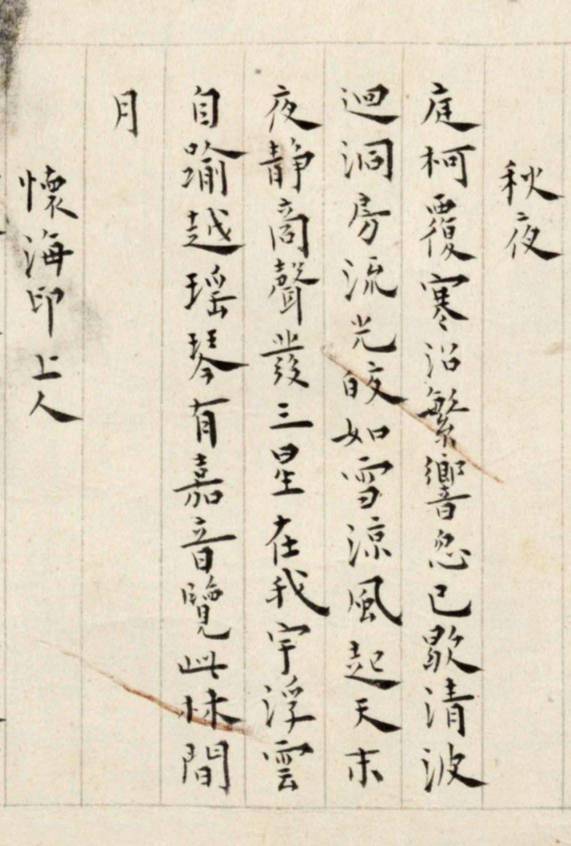 秋夜
庭柯覆寒沼繁響忽已歇清波
迴洞房流光皎如雪涼風起天末
夜静商聲發三星在我宇浮雲
自踰越瑶琴有嘉音覽此林間
月
懷海印上人